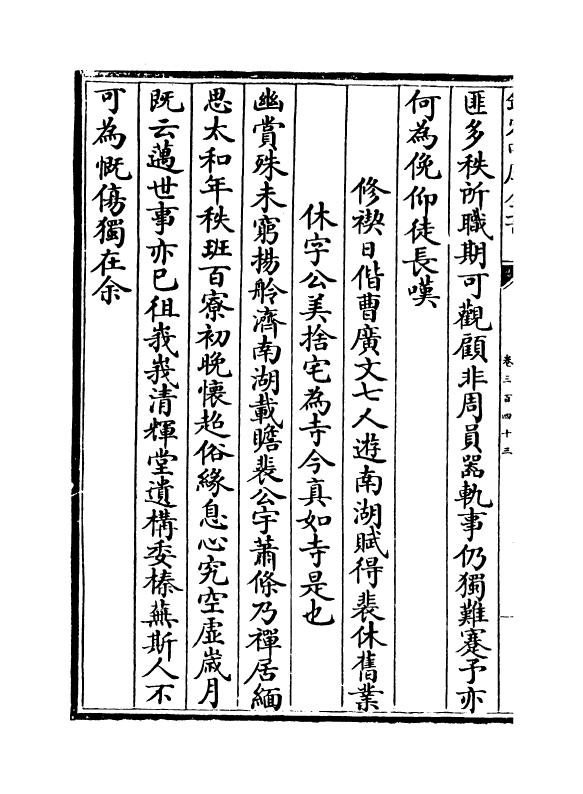 卷三百四十三
匪多秩所職期可觀顧非周員器軌事仍獨難蹇予亦
何為俛仰徒長嘆
修禊日偕曹廣文七人遊南湖賦得裴休舊業
休字公美捨宅為寺今真如寺是也
幽賞殊未窮揚舲濟南湖載瞻裴公宇蕭條乃禪居緬
思太和年秩班百寮初晚懷超俗緣息心究空虛歲月
既云邁世事亦已徂峩峩清輝堂遺構委榛蕪斯人不
可為慨傷獨在余